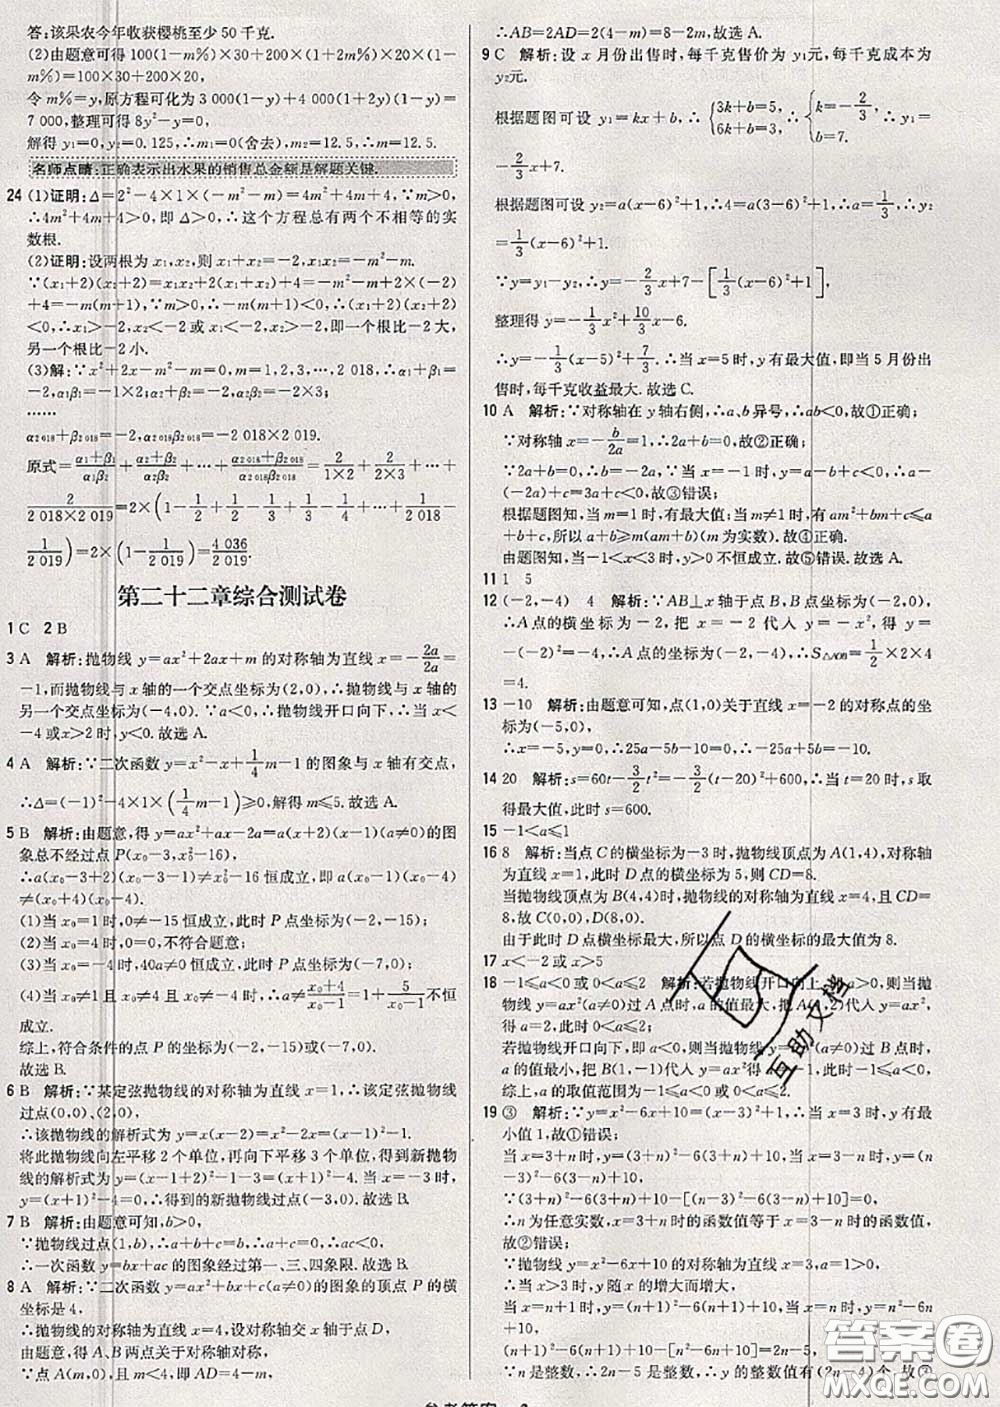 答:该果农今年收获樱桃至少 50 千克.
(2)由题意可得 100(1-m%)×30+200×(1+2m%)×20(1-
m%)=100×30+200×20,
令 m%=y,原方程可化为 3 000(1-y)+4 000(1+2y)(1-y)=
7 000,整理可得 8y²-y=0,
解得 y₁=0,y₂=0.125,∴m₁=0(舍去),m₂=12.5,∴m=12.5.
名师点睛:正确表示出水果的销售总金额是解题关键.
24 (1)证明:Δ=2²-4×1×(-m²-m)=4m²+4m+4,∵m>0,
∴4m²+4m+4>0,即 Δ>0,∴这个方程总有两个不相等的实
数根.
(2)证明:设两根为 x₁,x₂,则 x₁+x₂=-2,x₁·x₂=-m²-m.
∵(x₁+2)(x₂+2)=x₁x₂+2(x₁+x₂)+4=-m²-m+2×(-
2)+4=-m(m+1),∵m>0,∴-m(m+1)<0,∴(x₁+2)(x₂+2)
<0,∴x₁>-2,x₂<-2 或 x₁<-2,x₂>-2,即一个根比-2 大,
另一个根比-2 小.
(3)解:∵x²+2x-m²-m=0,m=1,2,3,…,2 018,∴α₁+β₁=
-2,α₁β₁=-1×2;α₂+β₂=-2,α₂β₂=-2×3;
……
α₂₀₁₈+β₂₀₁₈=-2,α₂₀₁₈β₂₀₁₈=-2 018×2 019.
原式=(α₁+β₁)/(α₁β₁)+(α₂+β₂)/(α₂β₂)+…+(α₂₀₁₈+β₂₀₁₈)/(α₂₀₁₈β₂₀₁₈)=2/(1×2)+2/(2×3)+…+
2/(2 018×2 019)=2×(1-1/2+1/2-1/3+1/3-1/4+…+1/(2 018)-
1/(2 019))=2×(1-1/(2 019))=4 036/2 019.
第二十二章综合测试卷
1 C 2 B
3 A 解析:抛物线 y=ax²+2ax+m 的对称轴为直线 x=-2a/2a=
-1,而抛物线与 x 轴的一个交点坐标为(2,0),∴抛物线与 x 轴的
另一个交点坐标为(-4,0).∵a<0,∴抛物线开口向下,∴当 x<
-4或x>2 时,y<0.故选 A.
4 A 解析:∵二次函数 y=x²-x+1/4m-1 的图象与 x 轴有交点,
∴Δ=(-1)²-4×1×(1/4m-1)≥0,解得 m≤5.故选 A.
5 B 解析:由题意,得 y=ax²+ax-2a=a(x+2)(x-1)(a≠0)的图
象总不经过点 P(x₀-3,x₀²-16),
∴a(x₀-3+2)(x₀-3-1)≠x₀²-16 恒成立,即 a(x₀-1)(x₀-4)
≠(x₀+4)(x₀-4).
(1)当 x₀=1 时,0≠-15 恒成立,此时 P 点坐标为(-2,-15);
(2)当 x₀=4 时,0=0,不符合题意;
(3)当 x₀=-4 时,40a≠0 恒成立,此时 P 点坐标为(-7,0);
(4)当 x₀≠1 且 x₀≠4 且 x₀≠-4 时,a≠(x₀+4)/(x₀-1)=1+5/(x₀-1)不恒
成立.
综上,符合条件的点 P 的坐标为(-2,-15)或(-7,0).
故选 B.
6 B 解析:∵某定弦抛物线的对称轴为直线 x=1,∴该定弦抛物线
过点(0,0)、(2,0),
∴该抛物线的解析式为 y=x(x-2)=x²-2x=(x-1)²-1.
将此抛物线向左平移 2 个单位,再向下平移 3 个单位,得到新抛物
线的解析式为 y=(x-1+2)²-1-3=(x+1)²-4.当 x=-3 时,
y=(x+1)²-4=0,∴得到的新抛物线过点(-3,0).故选 B.
7 B 解析:由题意可知,b>0,
∵抛物线过点(1,b),∴a+b+c=b,∴a+c=0,∴ac<0,
∴一次函数 y=bx+ac 的图象经过第一、三、四象限.故选 B.
8 A 解析:∵二次函数 y=ax²+bx+c(a≠0)的图象的顶点 P 的横
坐标是 4,
∴抛物线的对称轴为直线 x=4,设对称轴交 x 轴于点 D,
由题意可知点 A、点 B 关于对称轴对称,
∵点 A(m,0),且 m<4,即 AD=4-m,
∴AB=2AD=2(4-m)=8-2m,故选 A.
9 C 解析:设 x 月份出售时,每千克售价为 y₁元,每千克成本为
y₂元.
根据题图可设 y₁=kx+b,∴{3k+b=5, 6k+b=3,∴{k=-2/3, b=7,∴y₁=
-2/3x+7.
根据题图可设 y₂=a(x-6)²+1,∴4=a(3-6)²+1,∴a=1/3,∴y₂
=1/3(x-6)²+1.
∵y=y₁-y₂,∴y=-2/3x+7-[1/3(x-6)²+1],
整理得 y=-1/3x²+10/3x-6.
∴y=-1/3(x-5)²+7/3.∴当 x=5 时,y 有最大值,即当 5 月份出
售时,每千克收益最大.故选 C.
10 A 解析:∵对称轴在 y 轴右侧,∴a、b 异号,∴ab<0,故①正确;
∵对称轴 x=-b/2a=1,∴2a+b=0,故②正确;
∵2a+b=0,∴b=-2a.∵当 x=-1 时,y=a-b+c<0,∴a-
(-2a)+c=3a+c<0,故③错误;
根据题图知,当 m=1 时,有最大值;当 m≠1 时,有 am²+bm+c≤a
+b+c,所以 a+b≥m(am+b)(m 为实数).故④正确.
由题图知,当-1<x<3 时,y>0 不恒成立,故⑤错误.故选 A.
11 1 5
12 (-2,-4) 4 解析:∵AB⊥x 轴于点 B,B 点坐标为(-2,0),
∴A 点的横坐标为-2,把 x=-2 代入 y=-x²,得 y=
-(-2)²=-4,∴点 A 的坐标为(-2,-4),∴S△AOB=1/2×2×4
=4.
13 -10 解析:由题意可知,点(1,0)关于直线 x=-2 的对称点的坐
标为(-5,0),
∴x=-5 时,y=0,∴25a-5b-10=0,∴25a-5b=10.
14 20 解析:s=60t-3/2t²=-3/2(t-20)²+600,∴当 t=20 时,s 取
得最大值,此时 s=600.
15 -1<a≤1
16 8 解析:当点 C 的横坐标为-3 时,抛物线顶点为 A(1,4),对称轴
为直线 x=1,此时 D 点横坐标为 5,则 CD=8.
当抛物线顶点为 B(4,4)时,抛物线的对称轴为直线 x=4,且 CD=
8,故 C(0,0),D(8,0).
由于此时 D 点横坐标最大,所以点 D 的横坐标的最大值为 8.
17 x<-2 或 x>5
18 -1≤a<0 或 0<a≤2 解析:若抛物线开口向上,即 a>0,则当抛
物线 y=ax²(a≠0)过 A 点时,a 的值最大,把 A(1,2)代入 y=ax²,
得 a=2,此时 0<a≤2;
若抛物线开口向下,即 a<0,则当抛物线 y=ax²(a≠0)过 B 点时,
a 的值最小,把 B(1,-1)代入 y=ax²得 a=-1,此时-1≤a<0,
综上,a 的取值范围为-1≤a<0 或 0<a≤2.
19 ③ 解析:∵y=x²-6x+10=(x-3)²+1,∴当 x=3 时,y 有最
小值 1,故①错误;
当 x=3+n 时,y=(3+n)²-6(3+n)+10,
当 x=3-n 时,y=(n-3)²-6(3-n)+10,
∵(3+n)²-6(3+n)+10-[(n-3)²-6(3-n)+10]=0,
∴n 为任意实数,x=3+n 时的函数值等于 x=3-n 时的函数值,
故②错误;
∵抛物线 y=x²-6x+10 的对称轴为直线 x=3,a=1>0,
∴当 x>3 时,y 随 x 的增大而增大,
当 x=n+1 时,y=(n+1)²-6(n+1)+10,
当 x=n 时,y=n²-6n+10,
(n+1)²-6(n+1)+10-[n²-6n+10]=2n-5,
∵n 是整数,∴2n-5 是整数,n>3 时 2n-5
参考答案
互助文档
答案圈
MXQE.COM